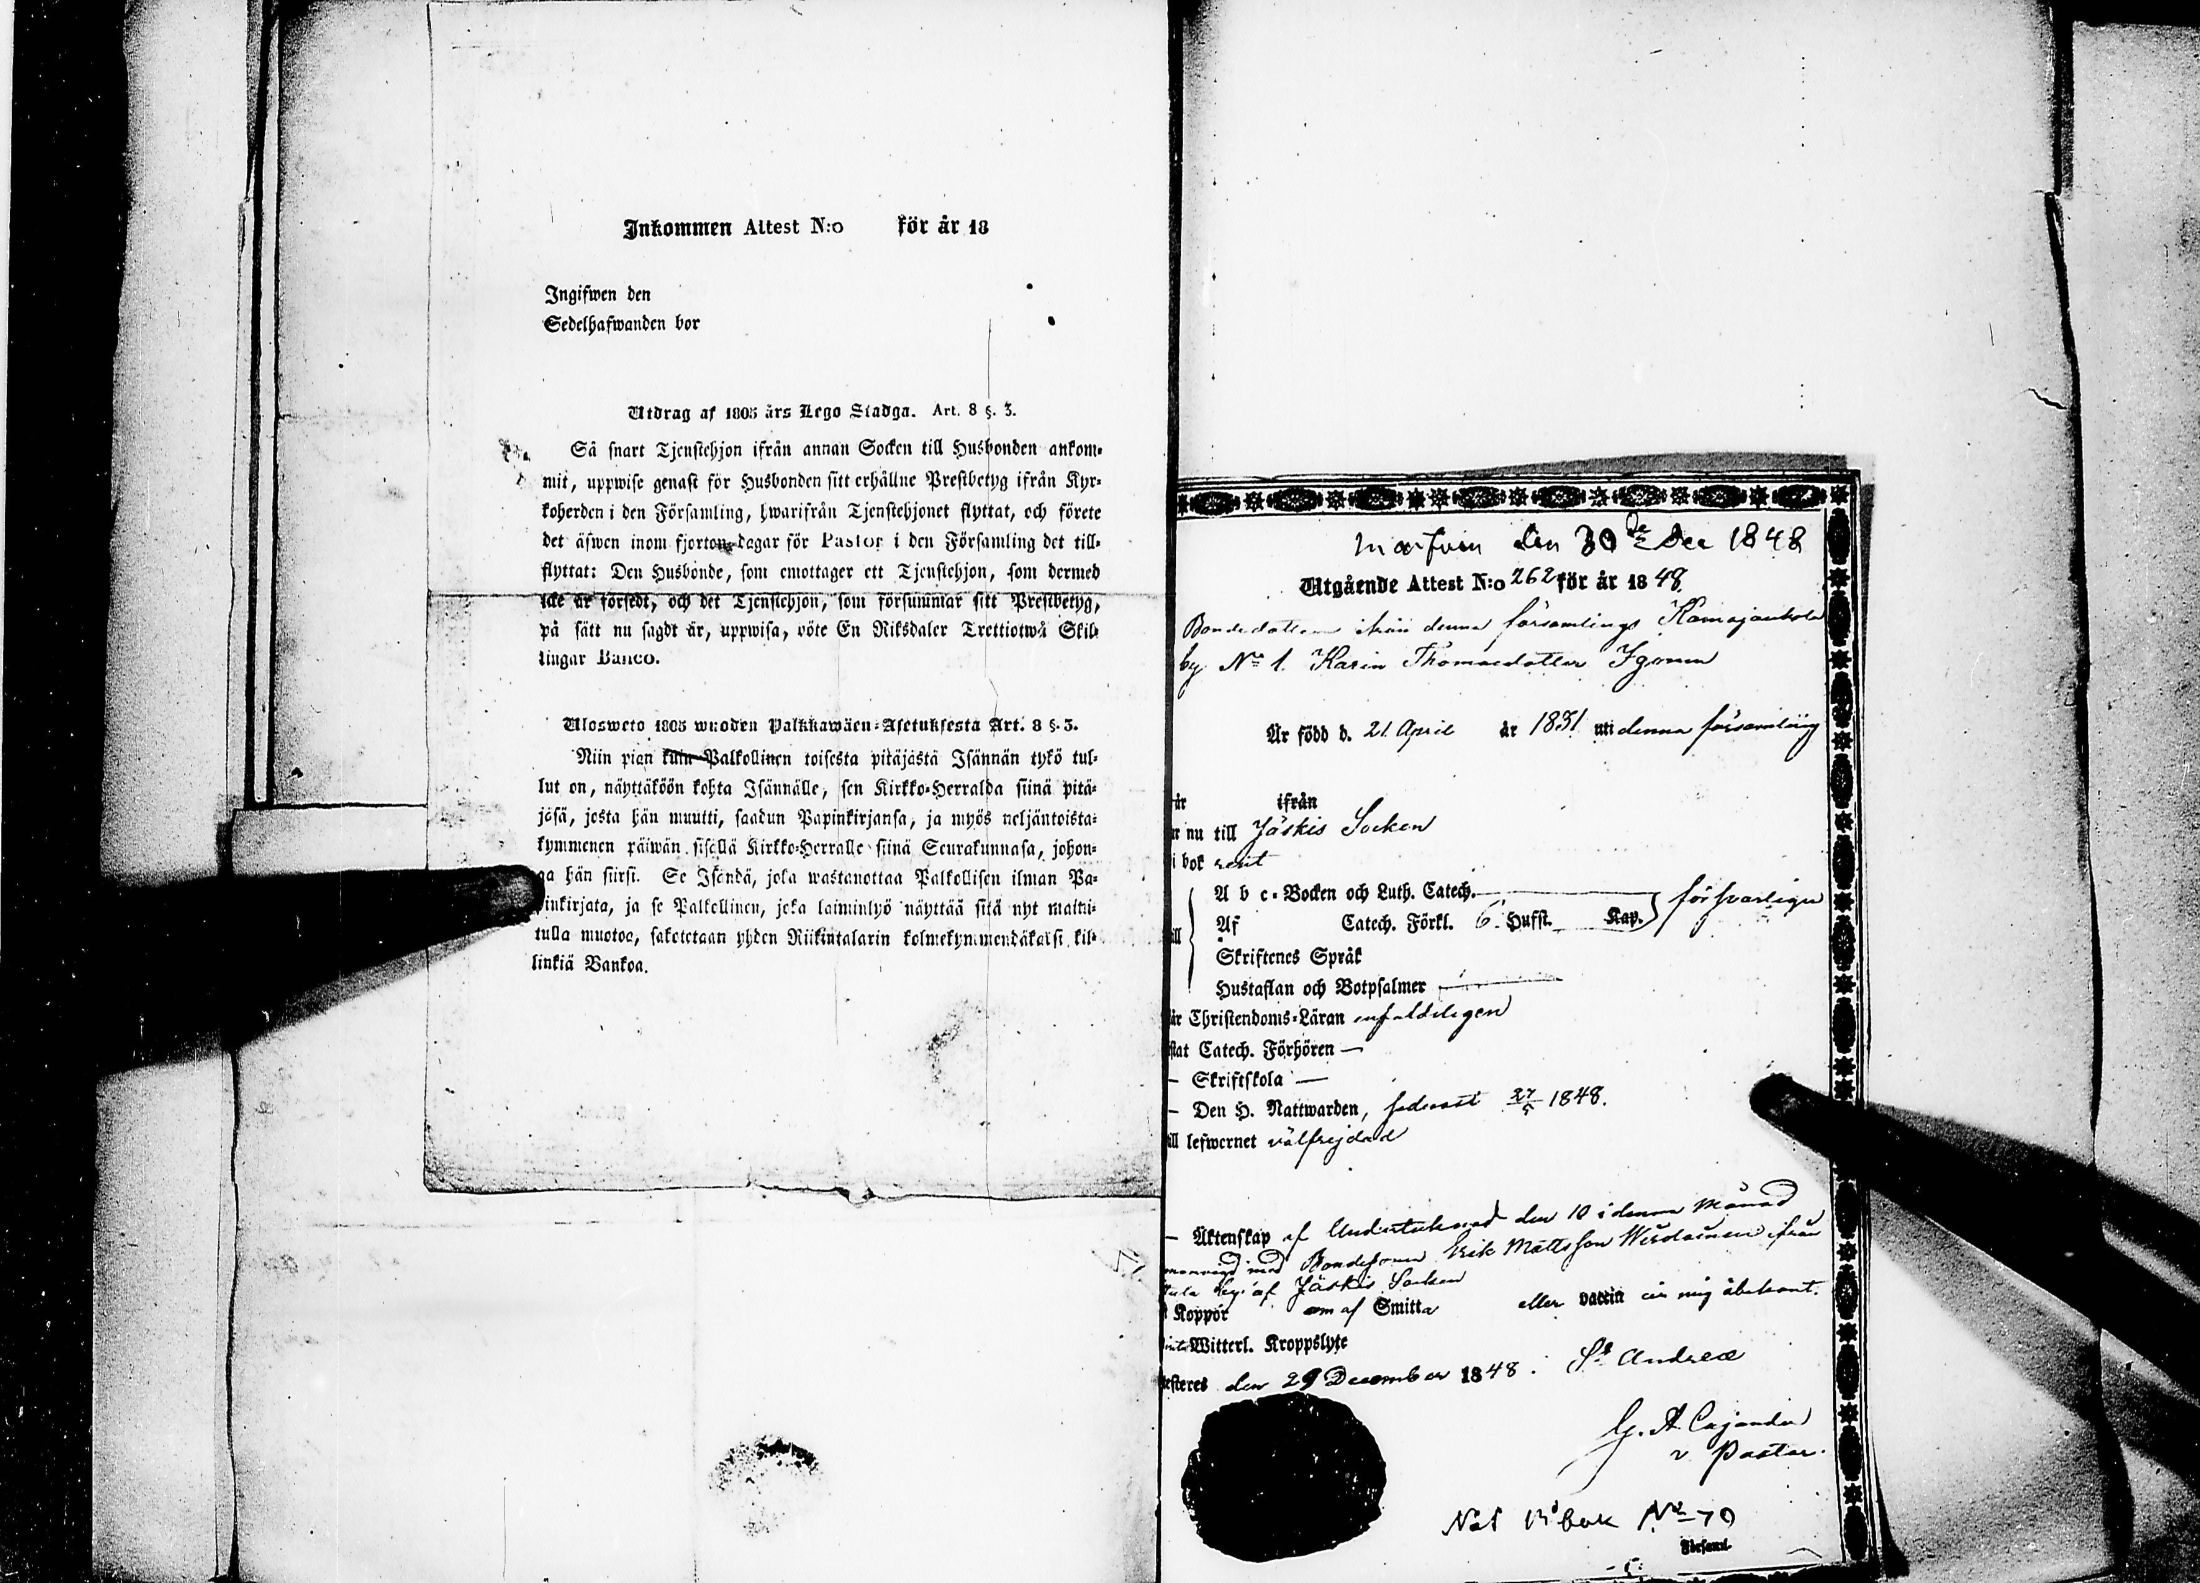 Inkommen Attest N:o för år 18
Ingifwen den
Sedelhafwanden bor
Utdrag af 1805 års Lego Stadga. Art. 8 §. 3.
Så snart Tjenstehjon ifrån annan Socken till Husbonden ankom-
mit, uppwise genast för Husbonden sitt erhållne Prestbetyg ifrån Kyr-
koherden i den Församling, hwarifrån Tjenstehjonet flyttat, och förete
det äfwen inom fjorton dagar för Pastor i den Församling det till-
flyttat: Den Husbonde, som emottager ett Tjenstehjon, som dermed
icke är försedt, och det Tjenstehjon, som försummar sitt Prestbetyg,
på sätt nu sagdt är, uppwisa, böte En Riksdaler Trettiotwå Skil-
lingar Banco.
Ulosweto 1805 wuoden Palkkawäen-Asetuksesta Art. 8 §. 3.
Niin pian kuin Palkollinen toisesta pitäjästä Isännän tykö tul-
lut on, näyttäköön kohta Isännälle, sen Kirkko-Herralda siinä pitä-
jäsä, josta hän muutti, saadun Papinkirjansa, ja myös neljäntoista-
kymmenen päiwän sisellä Kirkko-Herralle siinä Seurakunnasa, johon-
ga hän siirsi. Se Isändä, joka wastanottaa Palkollisen ilman Pa-
pinkirjata, ja se Palkollinen, joka laiminlyö näyttää sitä nyt maini-
tulla muotoa, sakotetaan yhden Riikintalarin kolmekymmendäkaksi kil-
linkiä Bankoa.
den 30de Dec 1848
Utgående Attest N:o 262 för år 1848
Bondedottren ifrån denna församlings Kamajankola
by No 1. Karin Thomasdotter Igonen
Är född d. 21 April år 1831 uti denna församling
år ifrån
r nu till Jäskis Socken
i bok rent
A b c-Bocken och Luth. Catech.
Af Catech. Förkl. 6 Hufst. Kap. försvarligen
Skriftenes Språk
Hustaflan och Botpsalmer
är Christendoms-Läran enfaldeligen
stat Catech. Förhören —
— Skriftskola —
— Den H. Nattwarden, sednast 27/5 1848.
ill lefwernet välfrejdad
— Äktenskap af Undertecknad den 10 i denna Månad
med Bondesonen Erik Mattsson ifrån
by af Jäskis Socken
Koppor om af Smitta eller vaccin är mig obekant.
Witterl. Kroppslyte
esteres den 29 December 1848. St Andreæ
G. A. Cajander
v Pastor.
bok No 70
Församl.